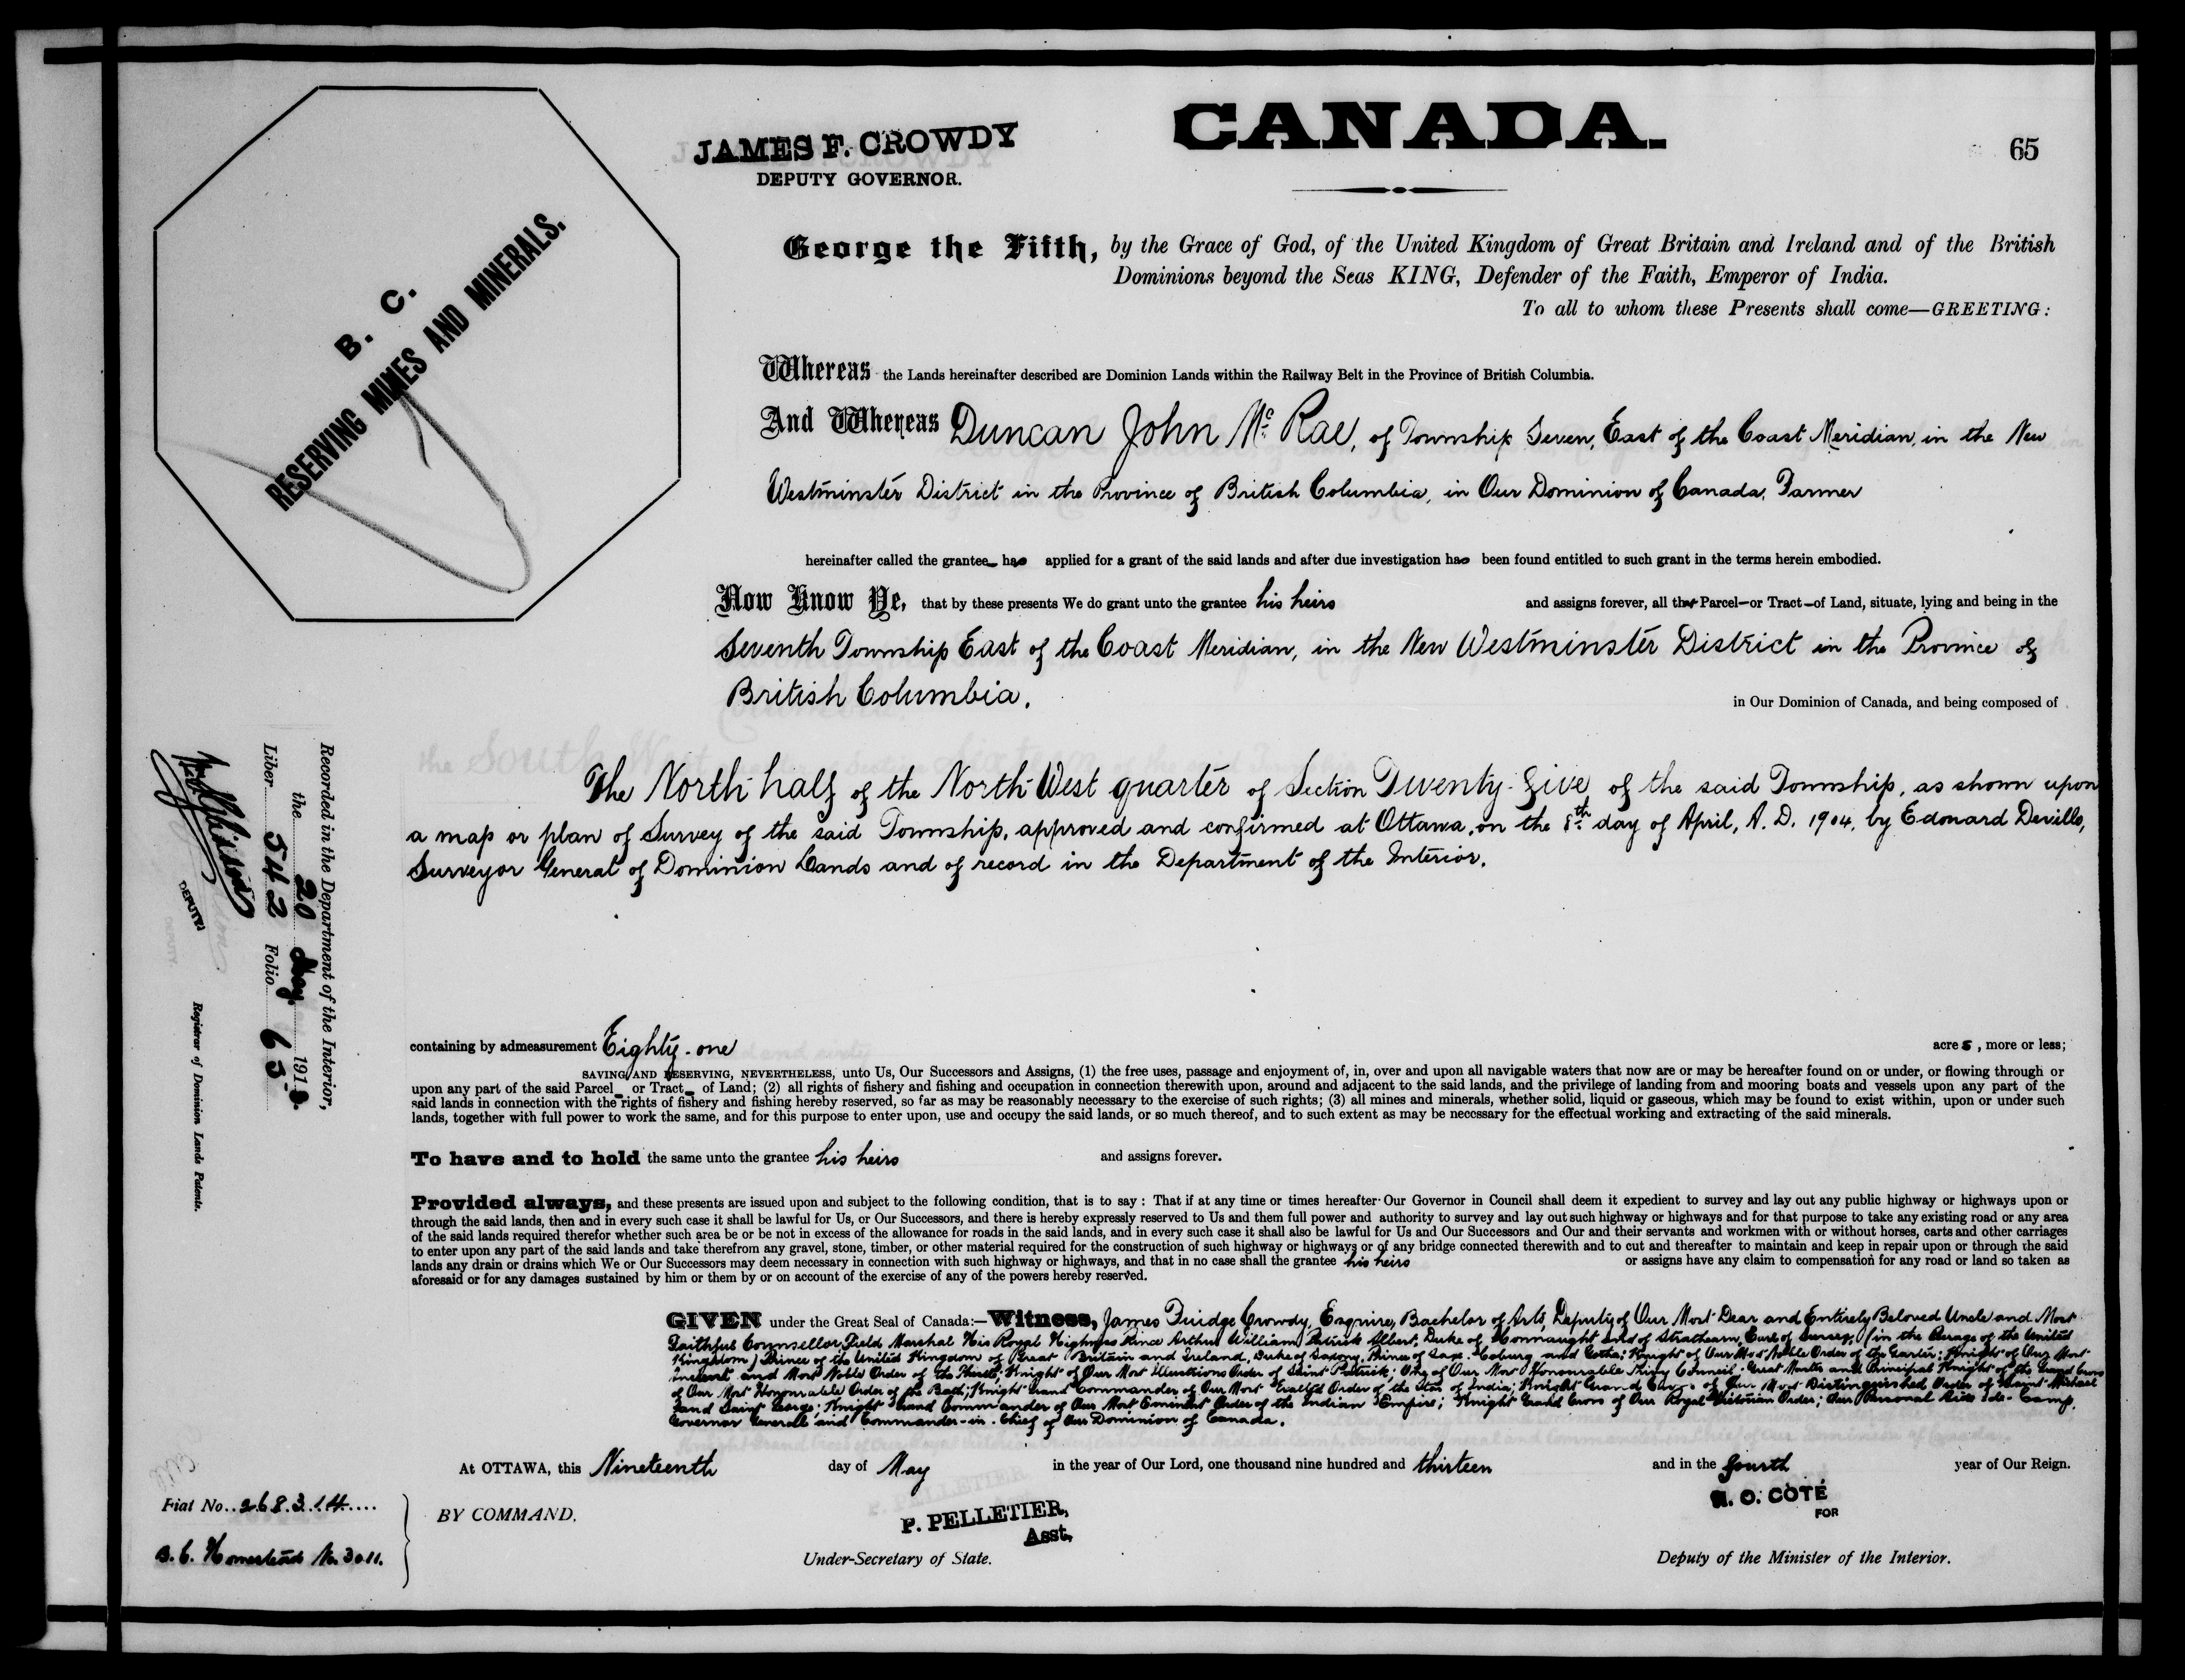 CANADA.
JAMES F. CROWDY
DEPUTY GOVERNOR.
65
B. C.
RESERVING MINES AND MINERALS.
George the Fifth, by the Grace of God, of the United Kingdom of Great Britain and Ireland and of the British
Dominions beyond the Seas KING, Defender of the Faith, Emperor of India.
To all to whom these Presents shall come—GREETING:
Whereas the Lands hereinafter described are Dominion Lands within the Railway Belt in the Province of British Columbia.
And Whereas Duncan John Mc Rae, of Township Seven, East of the Coast Meridian, in the New
Westminster District in the Province of British Columbia, in Our Dominion of Canada, Farmer
hereinafter called the grantee has applied for a grant of the said lands and after due investigation has been found entitled to such grant in the terms herein embodied.
Now Know Ye, that by these presents We do grant unto the grantee his heirs and assigns forever, all that Parcel—or Tract—of Land, situate, lying and being in the
Seventh Township East of the Coast Meridian, in the New Westminster District in the Province of
British Columbia. in Our Dominion of Canada, and being composed of
The North half of the North-West quarter of Section Twenty-five of the said Township, as shown upon
a map or plan of Survey of the said Township, approved and confirmed at Ottawa, on the 8th day of April, A. D. 1904, by Edouard Deville,
Surveyor General of Dominion Lands and of record in the Department of the Interior.
containing by admeasurement Eighty-one acres, more or less;
SAVING AND RESERVING, NEVERTHELESS, unto Us, Our Successors and Assigns, (1) the free uses, passage and enjoyment of, in, over and upon all navigable waters that now are or may be hereafter found on or under, or flowing through or
upon any part of the said Parcel or Tract of Land; (2) all rights of fishery and fishing and occupation in connection therewith upon, around and adjacent to the said lands, and the privilege of landing from and mooring boats and vessels upon any part of the
said lands in connection with the rights of fishery and fishing hereby reserved, so far as may be reasonably necessary to the exercise of such rights; (3) all mines and minerals, whether solid, liquid or gaseous, which may be found to exist within, upon or under such
lands, together with full power to work the same, and for this purpose to enter upon, use and occupy the said lands, or so much thereof, and to such extent as may be necessary for the effectual working and extracting of the said minerals.
To have and to hold the same unto the grantee his heirs and assigns forever.
Provided always, and these presents are issued upon and subject to the following condition, that is to say: That if at any time or times hereafter Our Governor in Council shall deem it expedient to survey and lay out any public highway or highways upon or
through the said lands, then and in every such case it shall be lawful for Us, or Our Successors, and there is hereby expressly reserved to Us and them full power and authority to survey and lay out such highway or highways and for that purpose to take any existing road or any area
of the said lands required therefor whether such area be or be not in excess of the allowance for roads in the said lands, and in every such case it shall also be lawful for Us and Our Successors and Our and their servants and workmen with or without horses, carts and other carriages
to enter upon any part of the said lands and take therefrom any gravel, stone, timber, or other material required for the construction of such highway or highways or of any bridge connected therewith and to cut and thereafter to maintain and keep in repair upon or through the said
lands any drain or drains which We or Our Successors may deem necessary in connection with such highway or highways, and that in no case shall the grantee his heirs or assigns have any claim to compensation for any road or land so taken as
aforesaid or for any damages sustained by him or them by or on account of the exercise of any of the powers hereby reserved.
GIVEN under the Great Seal of Canada:—Witness, James Fuidge Crowdy, Esquire, Bachelor of Arts, Deputy of Our Most Dear and Entirely Beloved Uncle and Most
Faithful Counsellor Field Marshal His Royal Highness Prince Arthur William Patrick Albert, Duke of Connaught and of Strathearn, Earl of Sussex, (in the Peerage of the United
Kingdom) Prince of the United Kingdom of Great Britain and Ireland, Duke of Saxony, Prince of Saxe-Coburg and Gotha; Knight of Our Most Noble Order of the Garter; Knight of Our Most
Ancient and Most Noble Order of the Thistle; Knight of Our Most Illustrious Order of Saint Patrick; One of Our Most Honourable Privy Council; Great Master and Principal Knight of the Grand Cross
of Our Most Honourable Order of the Bath; Knight Grand Commander of Our Most Exalted Order of the Star of India; Knight Grand Cross of Our Most Distinguished Order of Saint Michael
and Saint George; Knight Grand Commander of Our Most Eminent Order of the Indian Empire; Knight Grand Cross of Our Royal Victorian Order; Our Personal Aide-de-Camp,
Governor General and Commander-in-Chief of Our Dominion of Canada.
At OTTAWA, this Nineteenth day of May in the year of Our Lord, one thousand nine hundred and thirteen and in the fourth year of Our Reign.
BY COMMAND,
P. PELLETIER,
Asst.
Under-Secretary of State.
N. O. COTÉ
FOR
Deputy of the Minister of the Interior.
Fiat No. 268314
B. C. Homestead No. 3011.
Recorded in the Department of the Interior,
the 20 May 1913
Liber 542 Folio 65
DEPUTY
Registrar of Dominion Lands Patents.